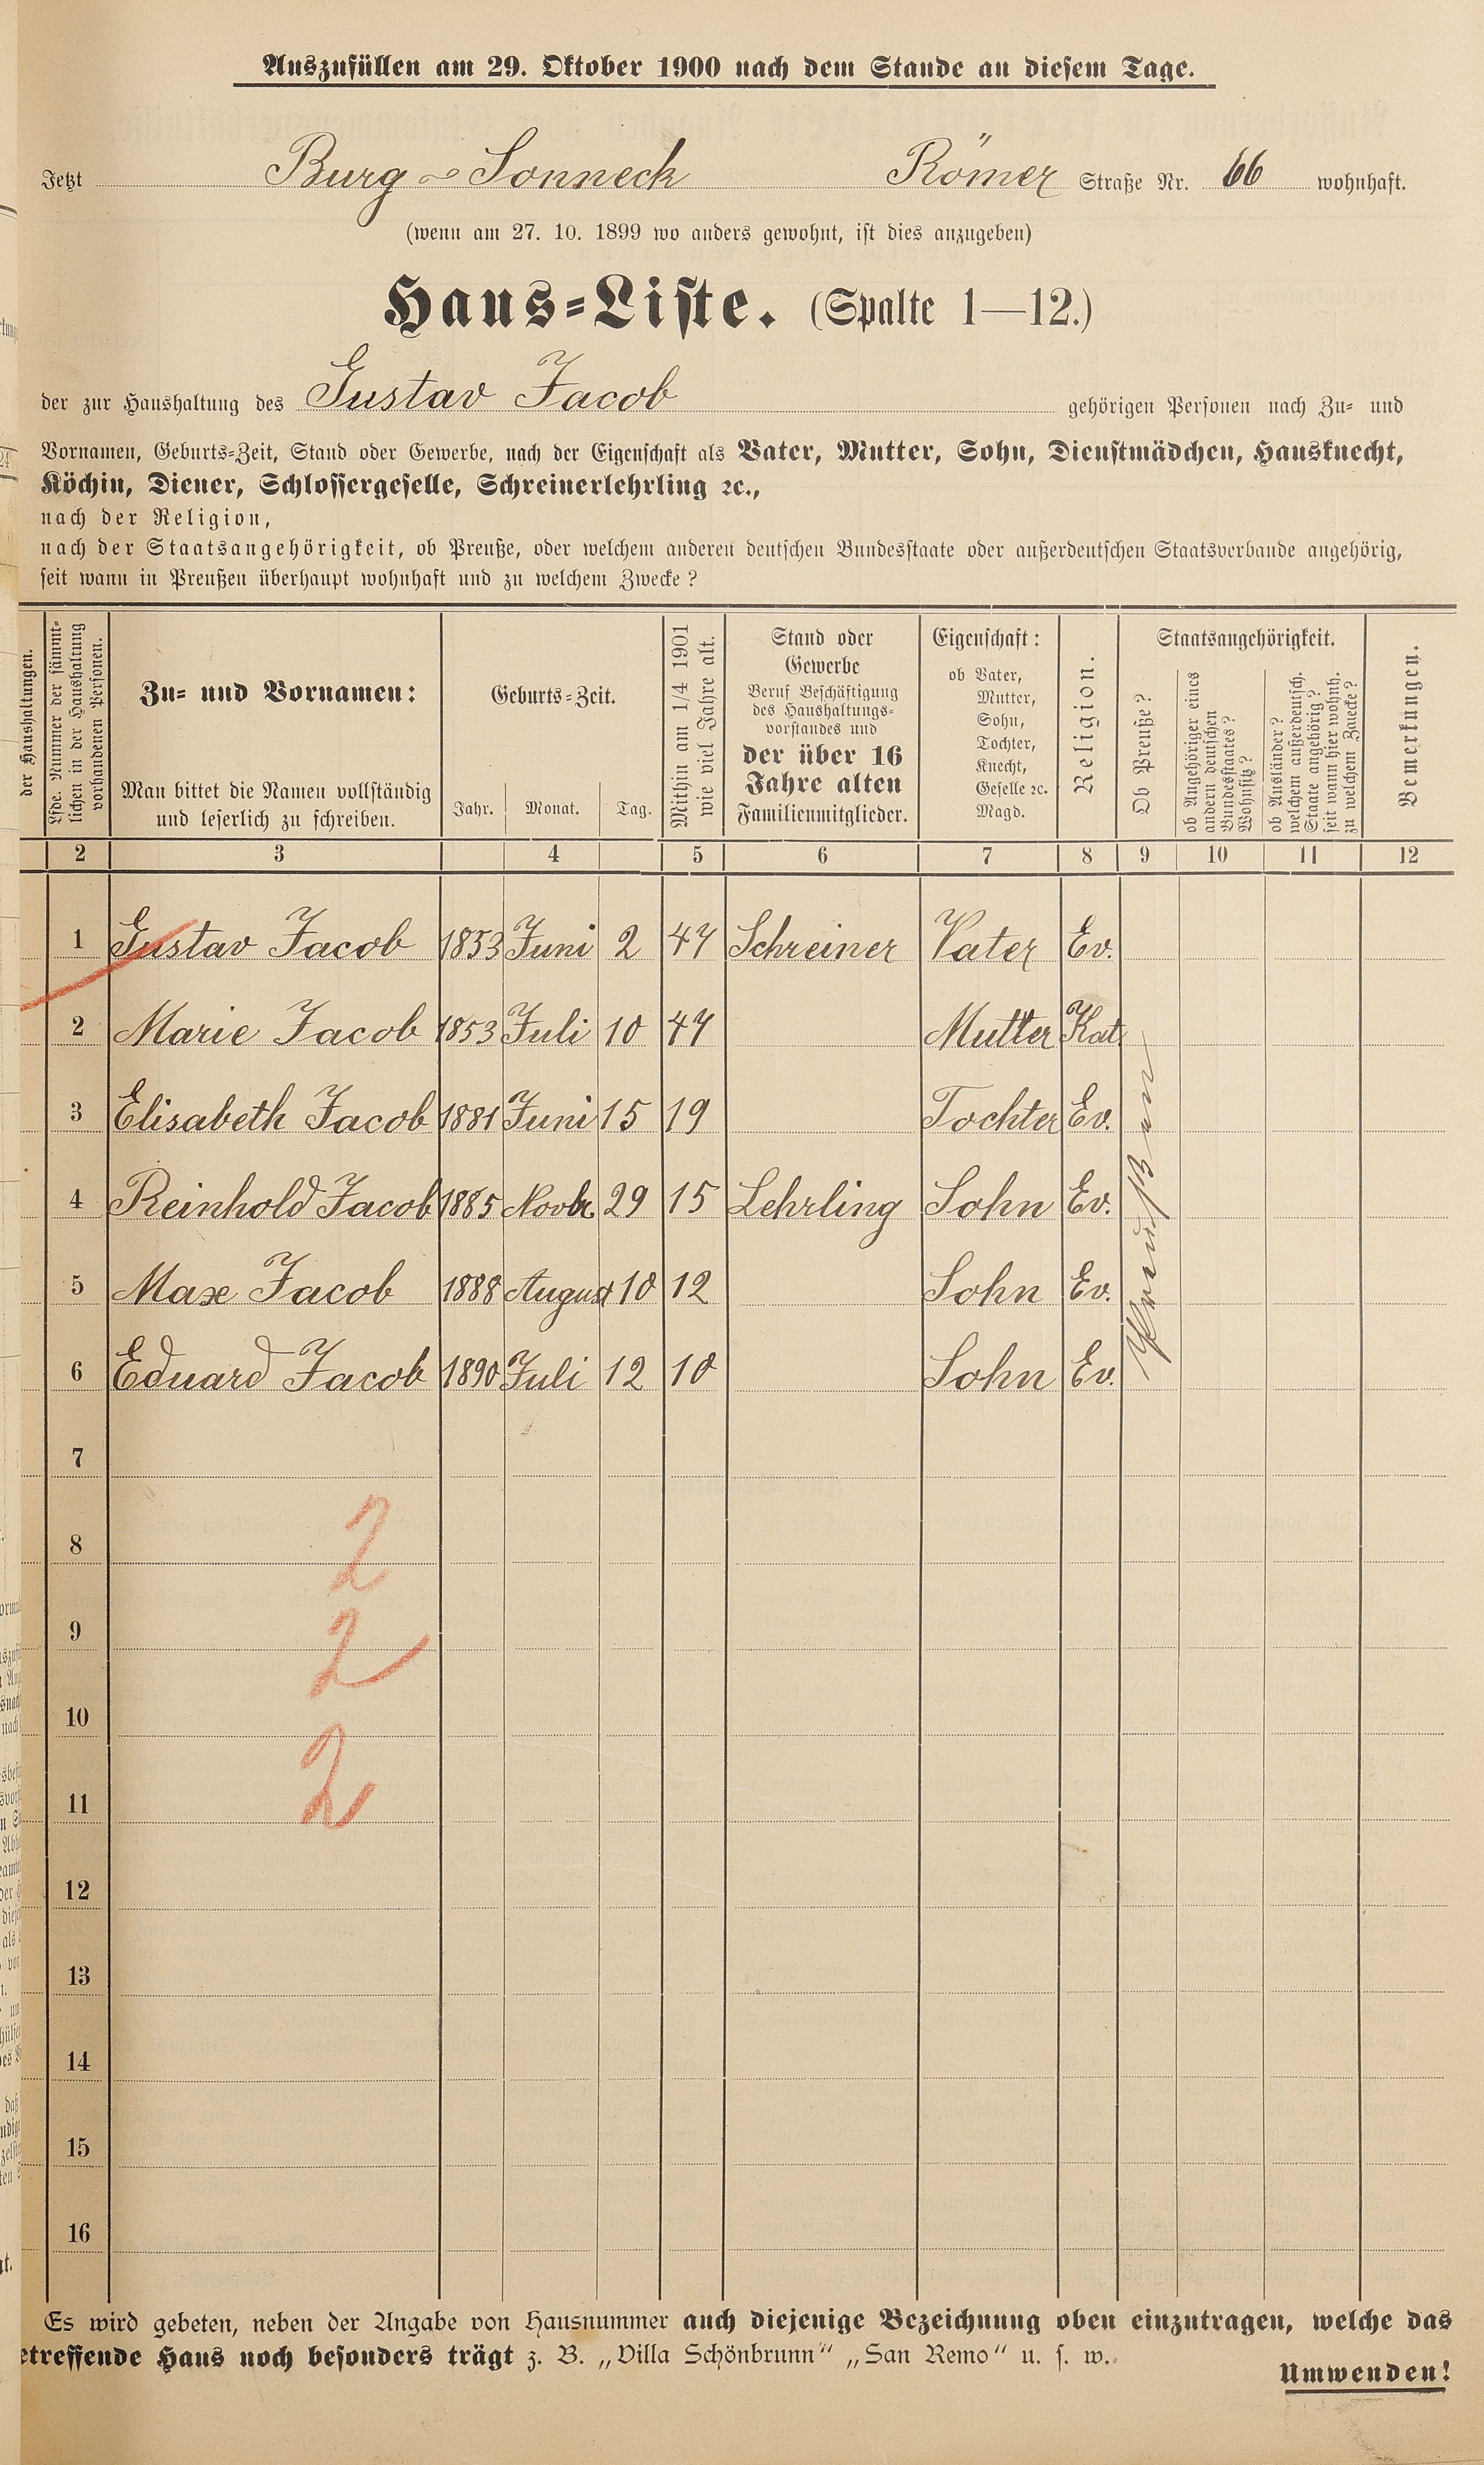 Auszufüllen am 29. Oktober 1900 nach dem Stande an diesem Tage.
Jetzt Burg Sonneck Römer Straße Nr. 66 wohnhaft.
(wenn am 27. 10. 1899 wo anders gewohnt, ist dies anzugeben)
Haus-Liste. (Spalte 1—12.)
der zur Haushaltung des Gustav Jacob gehörigen Personen nach Zu- und
Vornamen, Geburts-Zeit, Stand oder Gewerbe, nach der Eigenschaft als Vater, Mutter, Sohn, Dienstmädchen, Hausknecht,
Köchin, Diener, Schlossergeselle, Schreinerlehrling ꝛc.,
nach der Religion,
nach der Staatsangehörigkeit, ob Preuße, oder welchem anderen deutschen Bundesstaate oder außerdeutschen Staatsverbande angehörig,
seit wann in Preußen überhaupt wohnhaft und zu welchem Zwecke?
der Haushaltungen.
Lfde. Nummer der sämmt-
lichen in der Haushaltung
vorhandenen Personen.
Zu- und Vornamen:
Man bittet die Namen vollständig
und leserlich zu schreiben.
Geburts-Zeit.
Jahr. Monat. Tag.
Mithin am 1/4 1901
wie viel Jahre alt.
Stand oder
Gewerbe
Beruf Beschäftigung
des Haushaltungs-
vorstandes und
der über 16
Jahre alten
Familienmitglieder.
Eigenschaft:
ob Vater,
Mutter,
Sohn,
Tochter,
Knecht,
Geselle ꝛc.
Magd.
Religion.
Staatsangehörigkeit.
Ob Preuße?
ob Angehöriger eines
andern deutschen
Bundesstaates?
Wohnsitz?
ob Ausländer?
welchem außerdeutsch.
Staate angehörig?
seit wann hier wohnh.
zu welchem Zwecke?
Bemerkungen.
2 3 4 5 6 7 8 9 10 11 12
1 Gustav Jacob 1853 Juni 2 47 Schreiner Vater Ev.
2 Marie Jacob 1853 Juli 10 47 Mutter Kat.
3 Elisabeth Jacob 1881 Juni 15 19 Tochter Ev.
4 Reinhold Jacob 1885 Novbr. 29 15 Lehrling Sohn Ev.
5 Max Jacob 1888 August 10 12 Sohn Ev.
6 Eduard Jacob 1890 Juli 12 10 Sohn Ev.
Preußen
7
8
2
9
2
10
11
2
12
13
14
15
16
Es wird gebeten, neben der Angabe von Hausnummer auch diejenige Bezeichnung oben einzutragen, welche das
etreffende Haus noch besonders trägt z. B. „Villa Schönbrunn“ „San Remo“ u. s. w.
Umwenden!